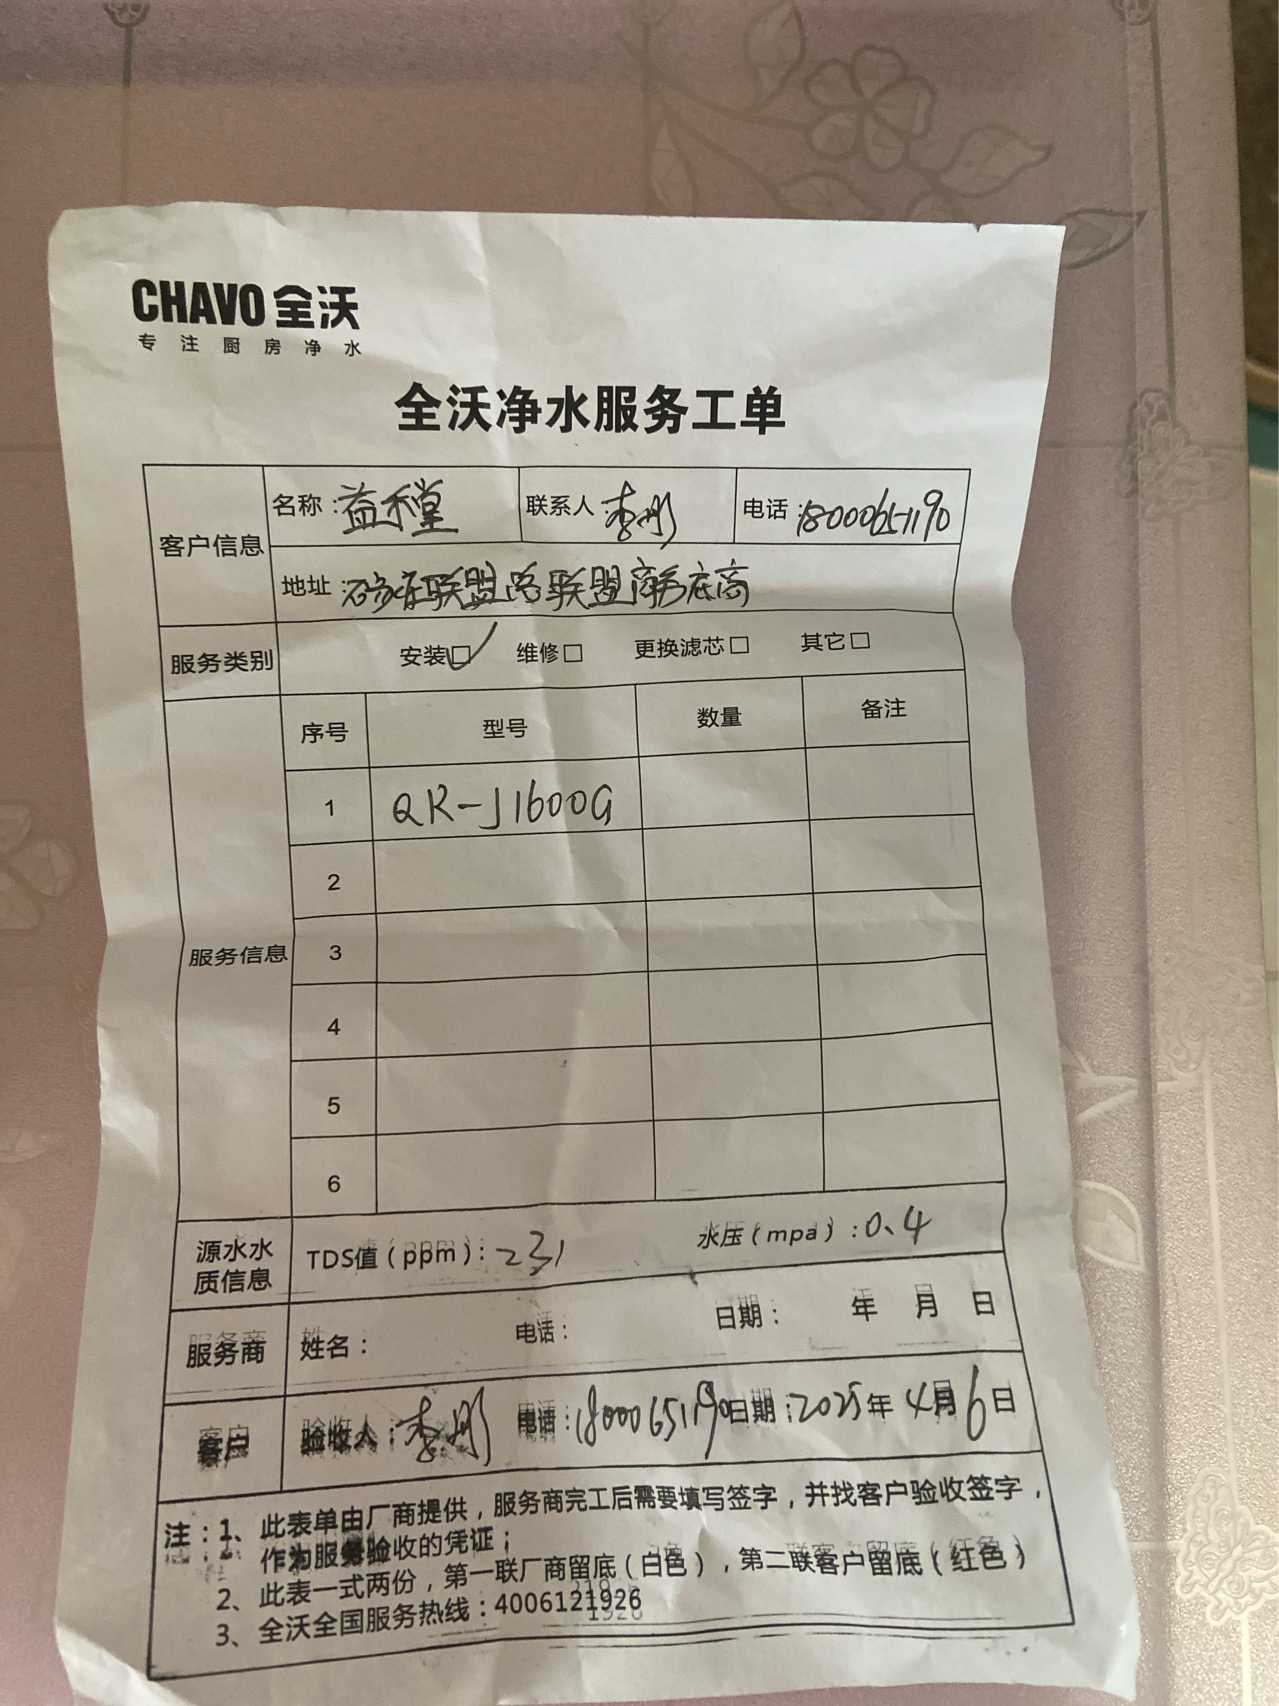 CHAVO 全沃
专注厨房净水
全沃净水服务工单
客户信息
名称：益禾堂 联系人：李彤 电话：18000651190
地址：联盟路联盟商务底商
服务类别 安装☑ 维修□ 更换滤芯□ 其它□
服务信息
序号 型号 数量 备注
1 QR-J1600G
2
3
4
5
6
源水水质信息 TDS值（ppm）：231 水压（mpa）：0.4
服务商 姓名： 电话： 日期： 年 月 日
客户 验收人：李彤 电话：18000651190 日期：2025年4月6日
注：1、此表单由厂商提供，服务商完工后需要填写签字，并找客户验收签字，
作为服务验收的凭证；
2、此表一式两份，第一联厂商留底（白色），第二联客户留底（红色）
3、全沃全国服务热线：4006121926